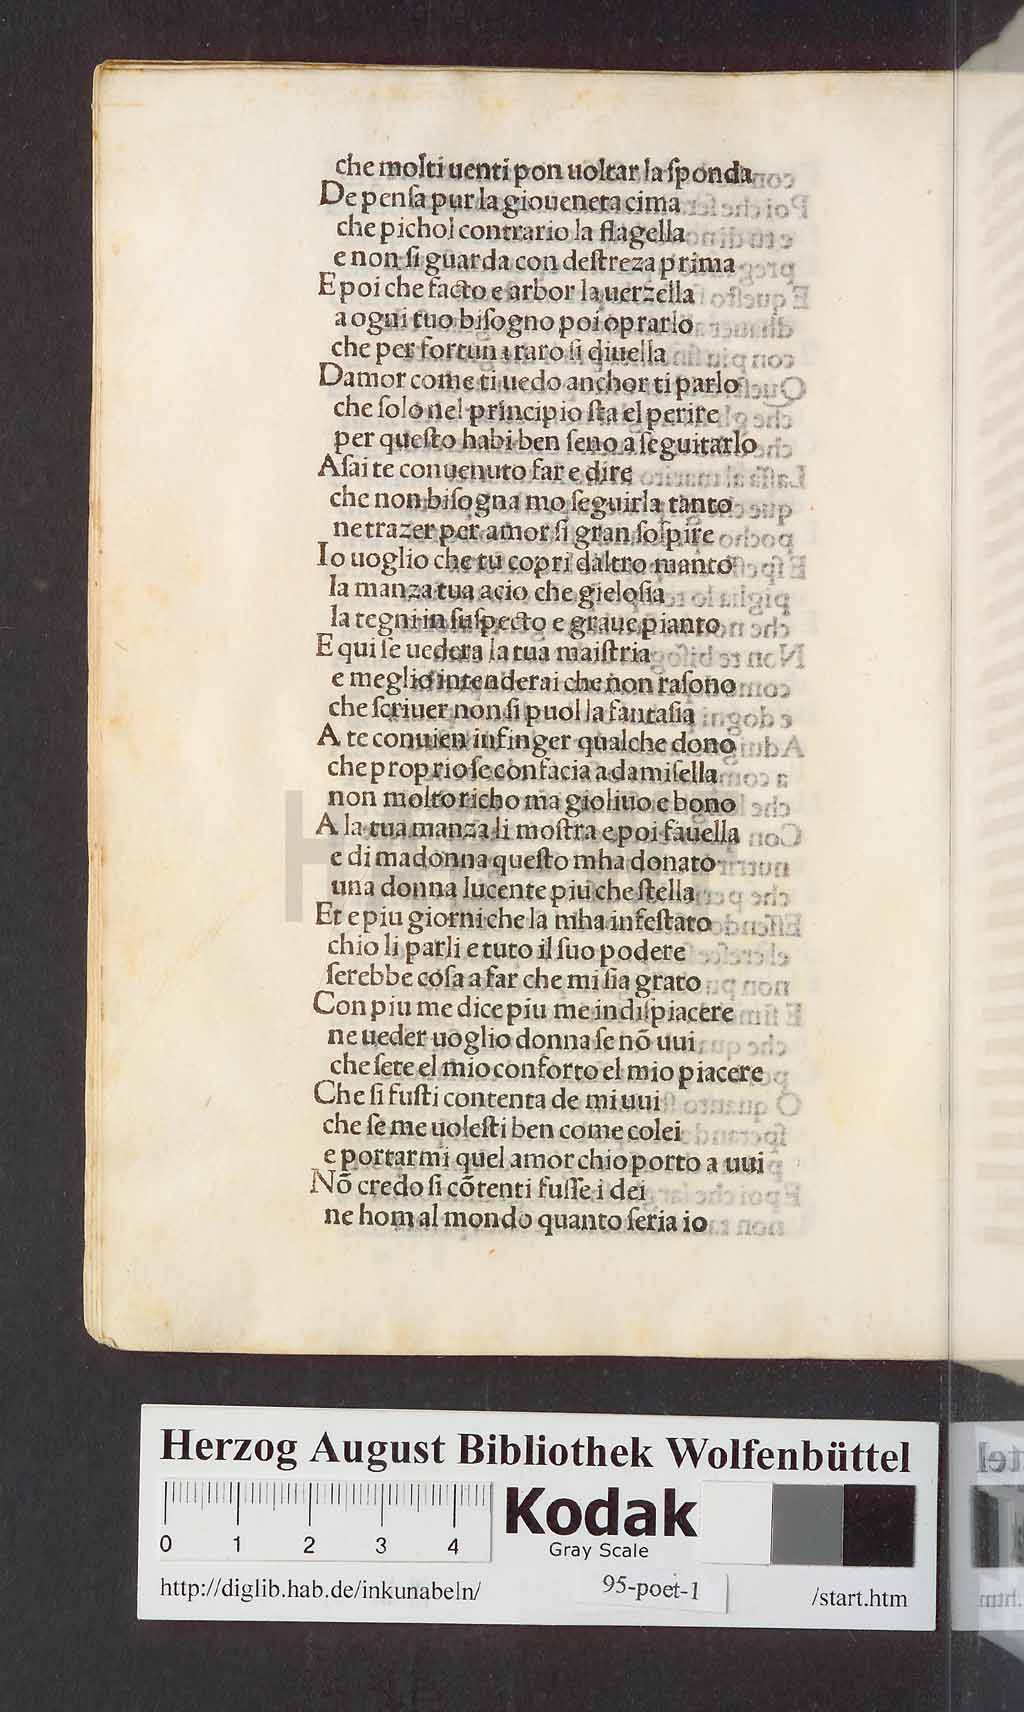 che molti uenti pon uoltar la ſponda
De penſa pur la gioueneta cima
che pichol contrario la flagella
e non ſi guarda con deſtreza prima
E poi che facto e arbor la uerzella
a ogni tuo biſogno poi oprarlo
che per fortuna raro ſi diuella
Damor come ti uedo anchor ti parlo
che ſolo nel principio ſta el perire
per queſto habi ben ſeno a ſeguitarlo
Aſai te conuenuto far e dire
che non biſogna mo ſeguirla tanto
ne trazer per amor ſi gran ſoſpire
Io uoglio che tu copri daltro manto
la manza tua acio che gieloſia
la tegni in ſuſpecto e graue pianto
E qui ſe uedera la tua maiſtria
e meglio intenderai che non raſono
che ſcriuer non ſi puol la fantaſia
A te conuien infinger qualche dono
che proprio ſe confacia a damiſella
non molto richo ma gioliuo e bono
A la tua manza li moſtra e poi fauella
e di madonna queſto mha donato
una donna lucente piu che ſtella
Et e piu giorni che la mha infeſtato
chio li parli e tuto il ſuo podere
ſerebbe coſa a far che mi ſia grato
Con piu me dice piu me indiſpiacere
ne ueder uoglio donna ſe nō uui
che ſete el mio conforto el mio piacere
Che ſi fuſti contenta de mi uui
che ſe me uoleſti ben come colei
e portarmi quel amor chio porto a uui
Nō credo ſi cōtenti fuſſe i dei
ne hom al mondo quanto ſeria io
Herzog August Bibliothek Wolfenbüttel
0 1 2 3 4
Kodak
Gray Scale
http://diglib.hab.de/inkunabeln/ 95-poet-1 /start.htm